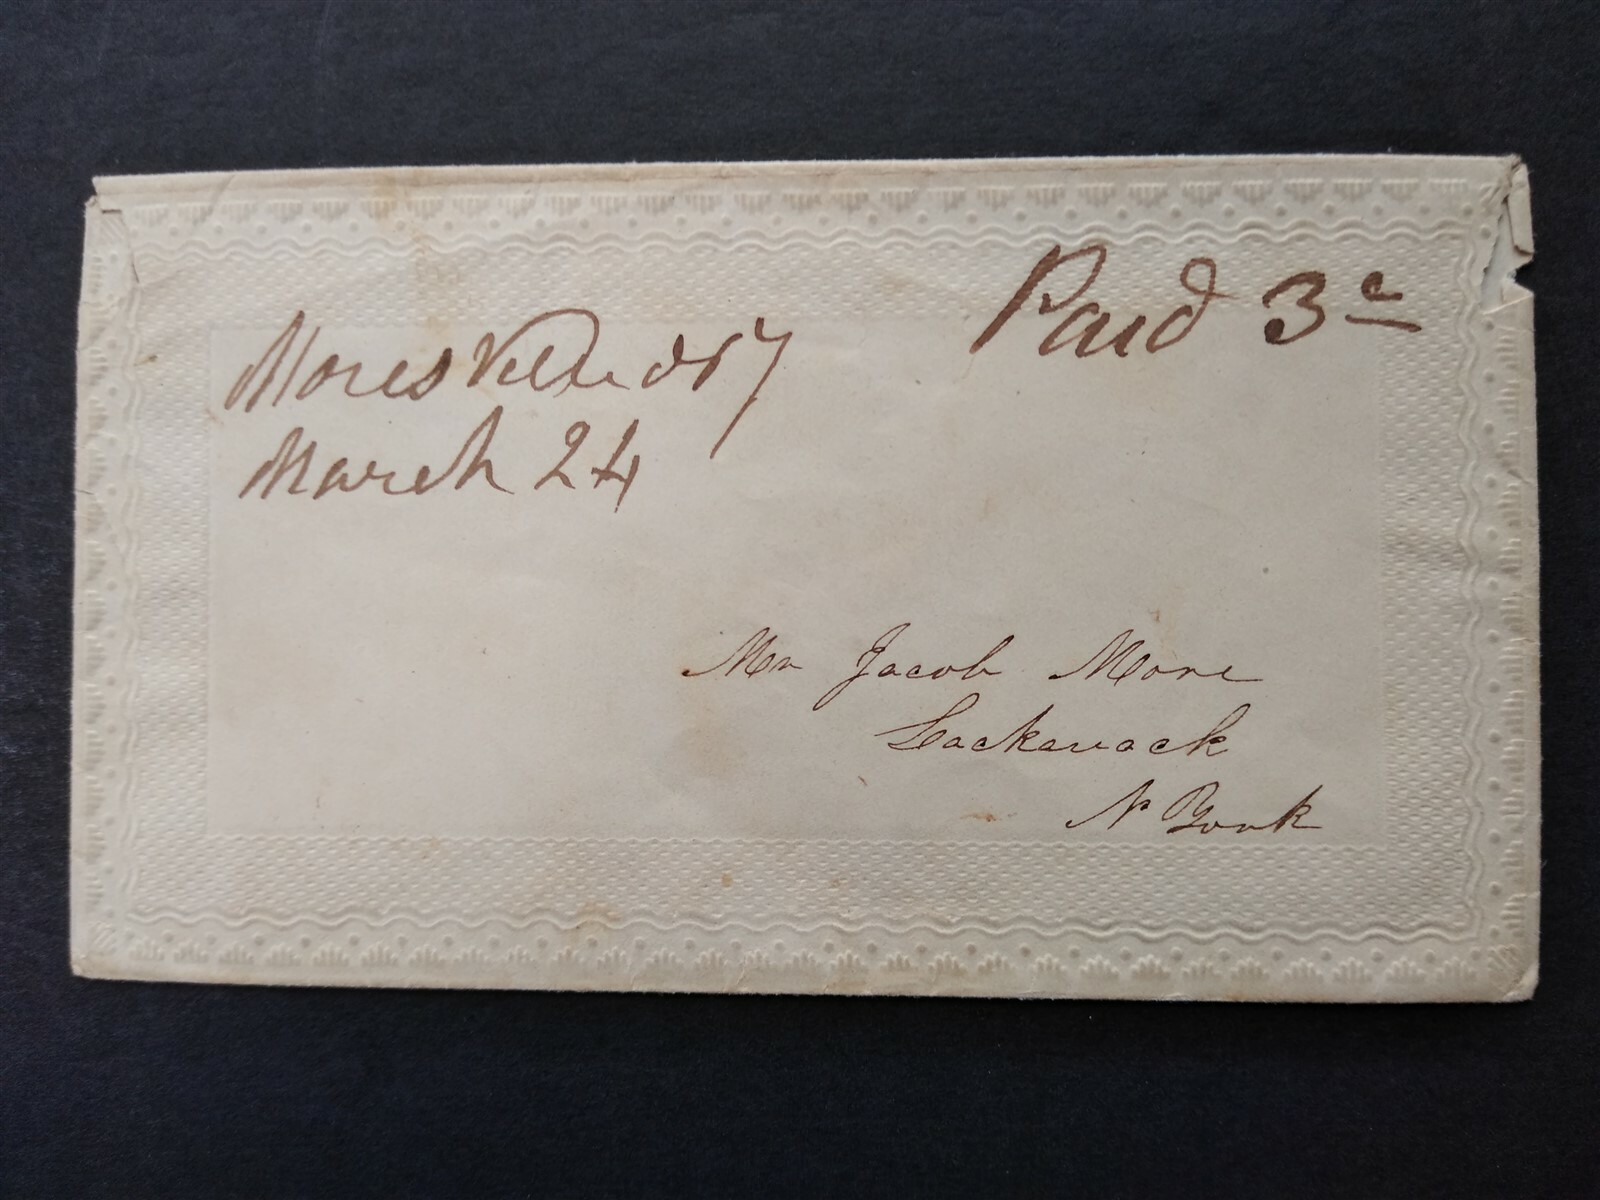 Paid 3c
Moresville N Y
March 24
Mr Jacob More
Lackawack
N York